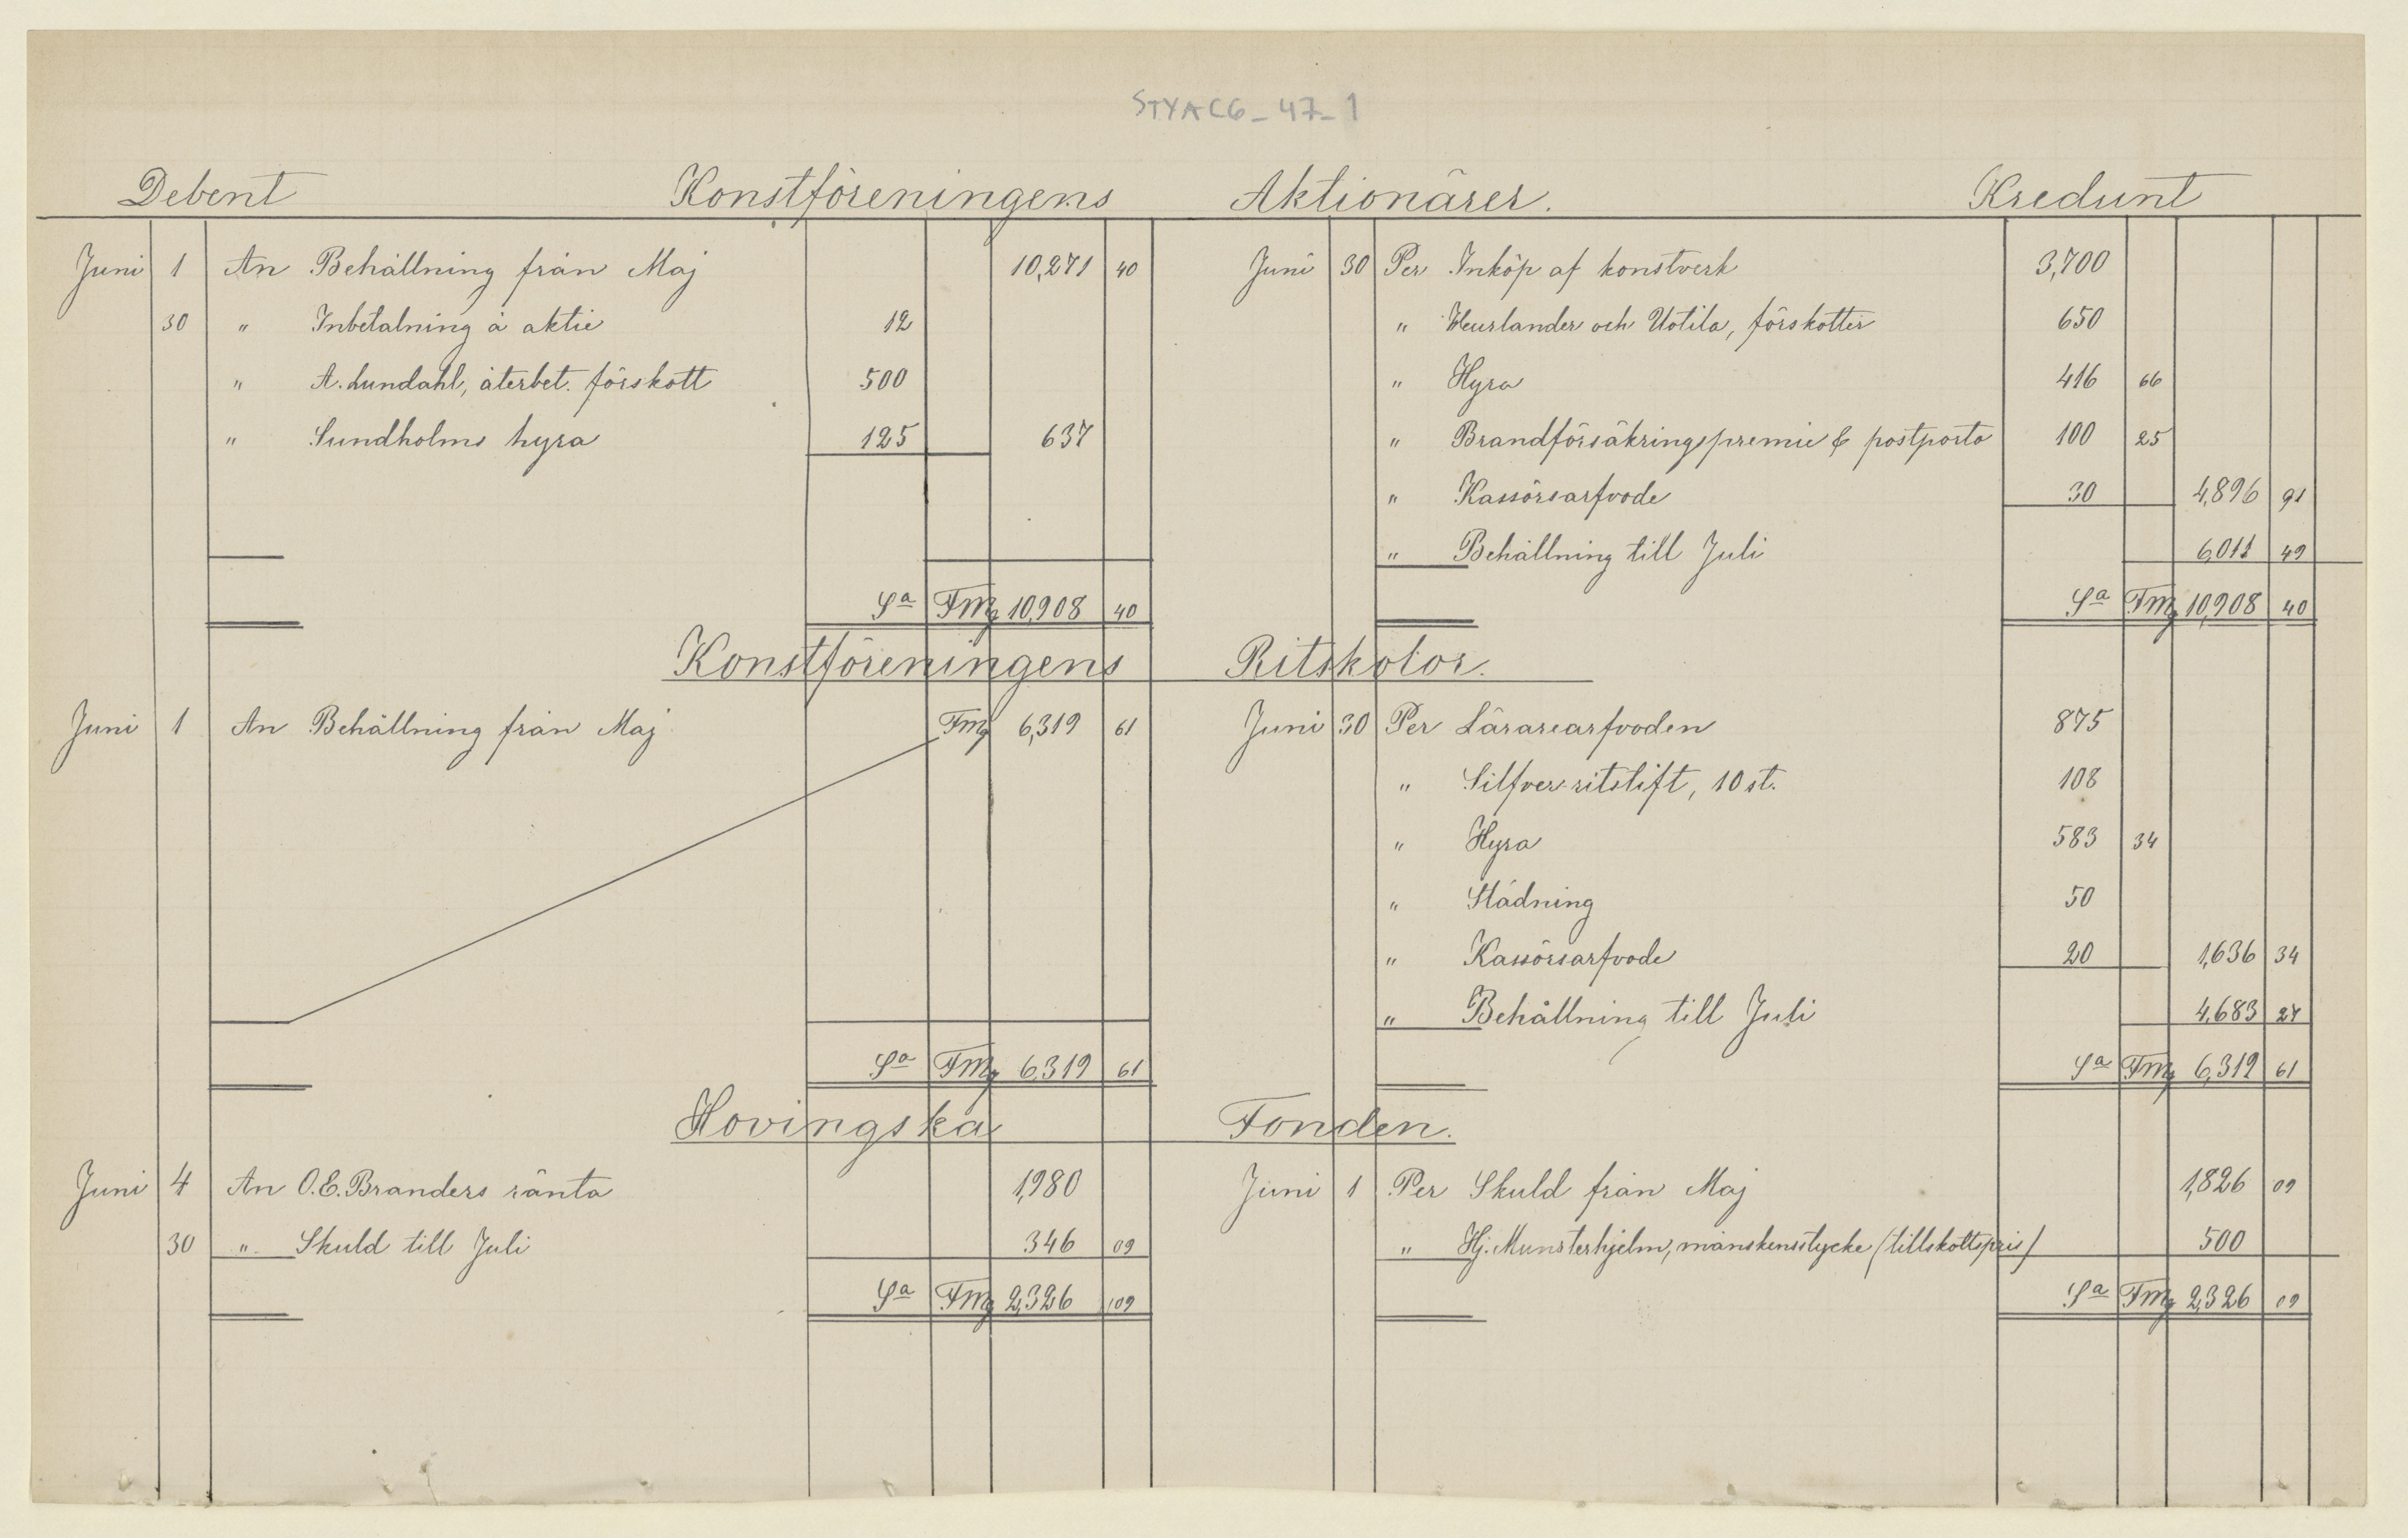 STYAC6_47_1
Debent Konstföreningens Aktionärer. Kredunt
Juni 1 An Behållning från Maj 10,271 40 Juni 30 Per Inköp af konstverk 3,700
30 " Inbetalning å aktie 12 " Heurlander och Uotila, förskotter 650
" A. Lundahl, återbet. förskott 500 " Hyra 416 66
" Sundholms hyra 125 637 " Brandförsäkringspremie & postporto 100 25
" Kassörsarfvode 30 4,896 91
" Behållning till Juli 6,011 49
Sa Fmg 10,908 40 Sa Fmg 10,908 40
Konstföreningens Ritskolor.
Juni 1 An Behållning från Maj Fmg 6,319 61 Juni 30 Per Lärarearfvoden 875
" Silfver-ritstift, 10 st. 108
" Hyra 583 34
" Städning 50
" Kassörsarfvode 20 1,636 34
" Behållning till Juli 4,683 27
Sa Fmg 6,319 61 Sa Fmg 6,319 61
Hovingska Fonden.
Juni 4 An O.E. Branders ränta 1,980 Juni 1 Per Skuld från Maj 1,826 09
30 " Skuld till Juli 346 09 " Hj. Munsterhjelm, månskensstycke (tillskottspris) 500
Sa Fmg 2,326 09 Sa Fmg 2,326 09